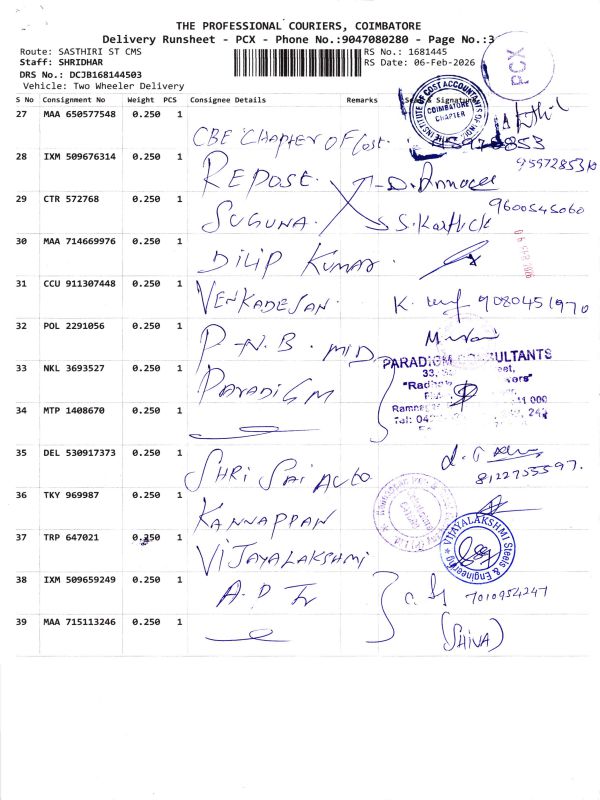 THE PROFESSIONAL COURIERS, COIMBATORE
Delivery Runsheet - PCX - Phone No.:9047080280 - Page No.:3
Route: SASTHIRI ST CMS
RS No.: 1681445
Staff: SHRIDHAR
RS Date: 06-Feb-2026
DRS No.: DCJB168144503
Vehicle: Two Wheeler Delivery
PCX
S No Consignment No Weight PCS Consignee Details Remarks Seal & Signature
27 MAA 650577548 0.250 1 CBE CHAPTER OF Cost.
THE INSTITUTE OF COST ACCOUNTANTS OF INDIA
COIMBATORE CHAPTER
28 IXM 509676314 0.250 1 REPOSE.
29 CTR 572768 0.250 1 SUGUNA. S. Karthick 9600545060
30 MAA 714669976 0.250 1 DILIP KUMAR.
31 CCU 911307448 0.250 1 VENKADESAN. K. 9080451970
32 POL 2291056 0.250 1 P.N.B. MID.
33 NKL 3693527 0.250 1 PARADIGM
PARADIGM CONSULTANTS
33,
34 MTP 1408670 0.250 1
35 DEL 530917373 0.250 1 SHRI SAI AUTO 8122755597.
36 TKY 969987 0.250 1 KANNAPPAN
37 TRP 647021 0.250 1 VIJAYALAKSHMI
VIJAYALAKSHMI Steels & Engineering
38 IXM 509659249 0.250 1 A.D 7010954247
39 MAA 715113246 0.250 1 (SHIVA)